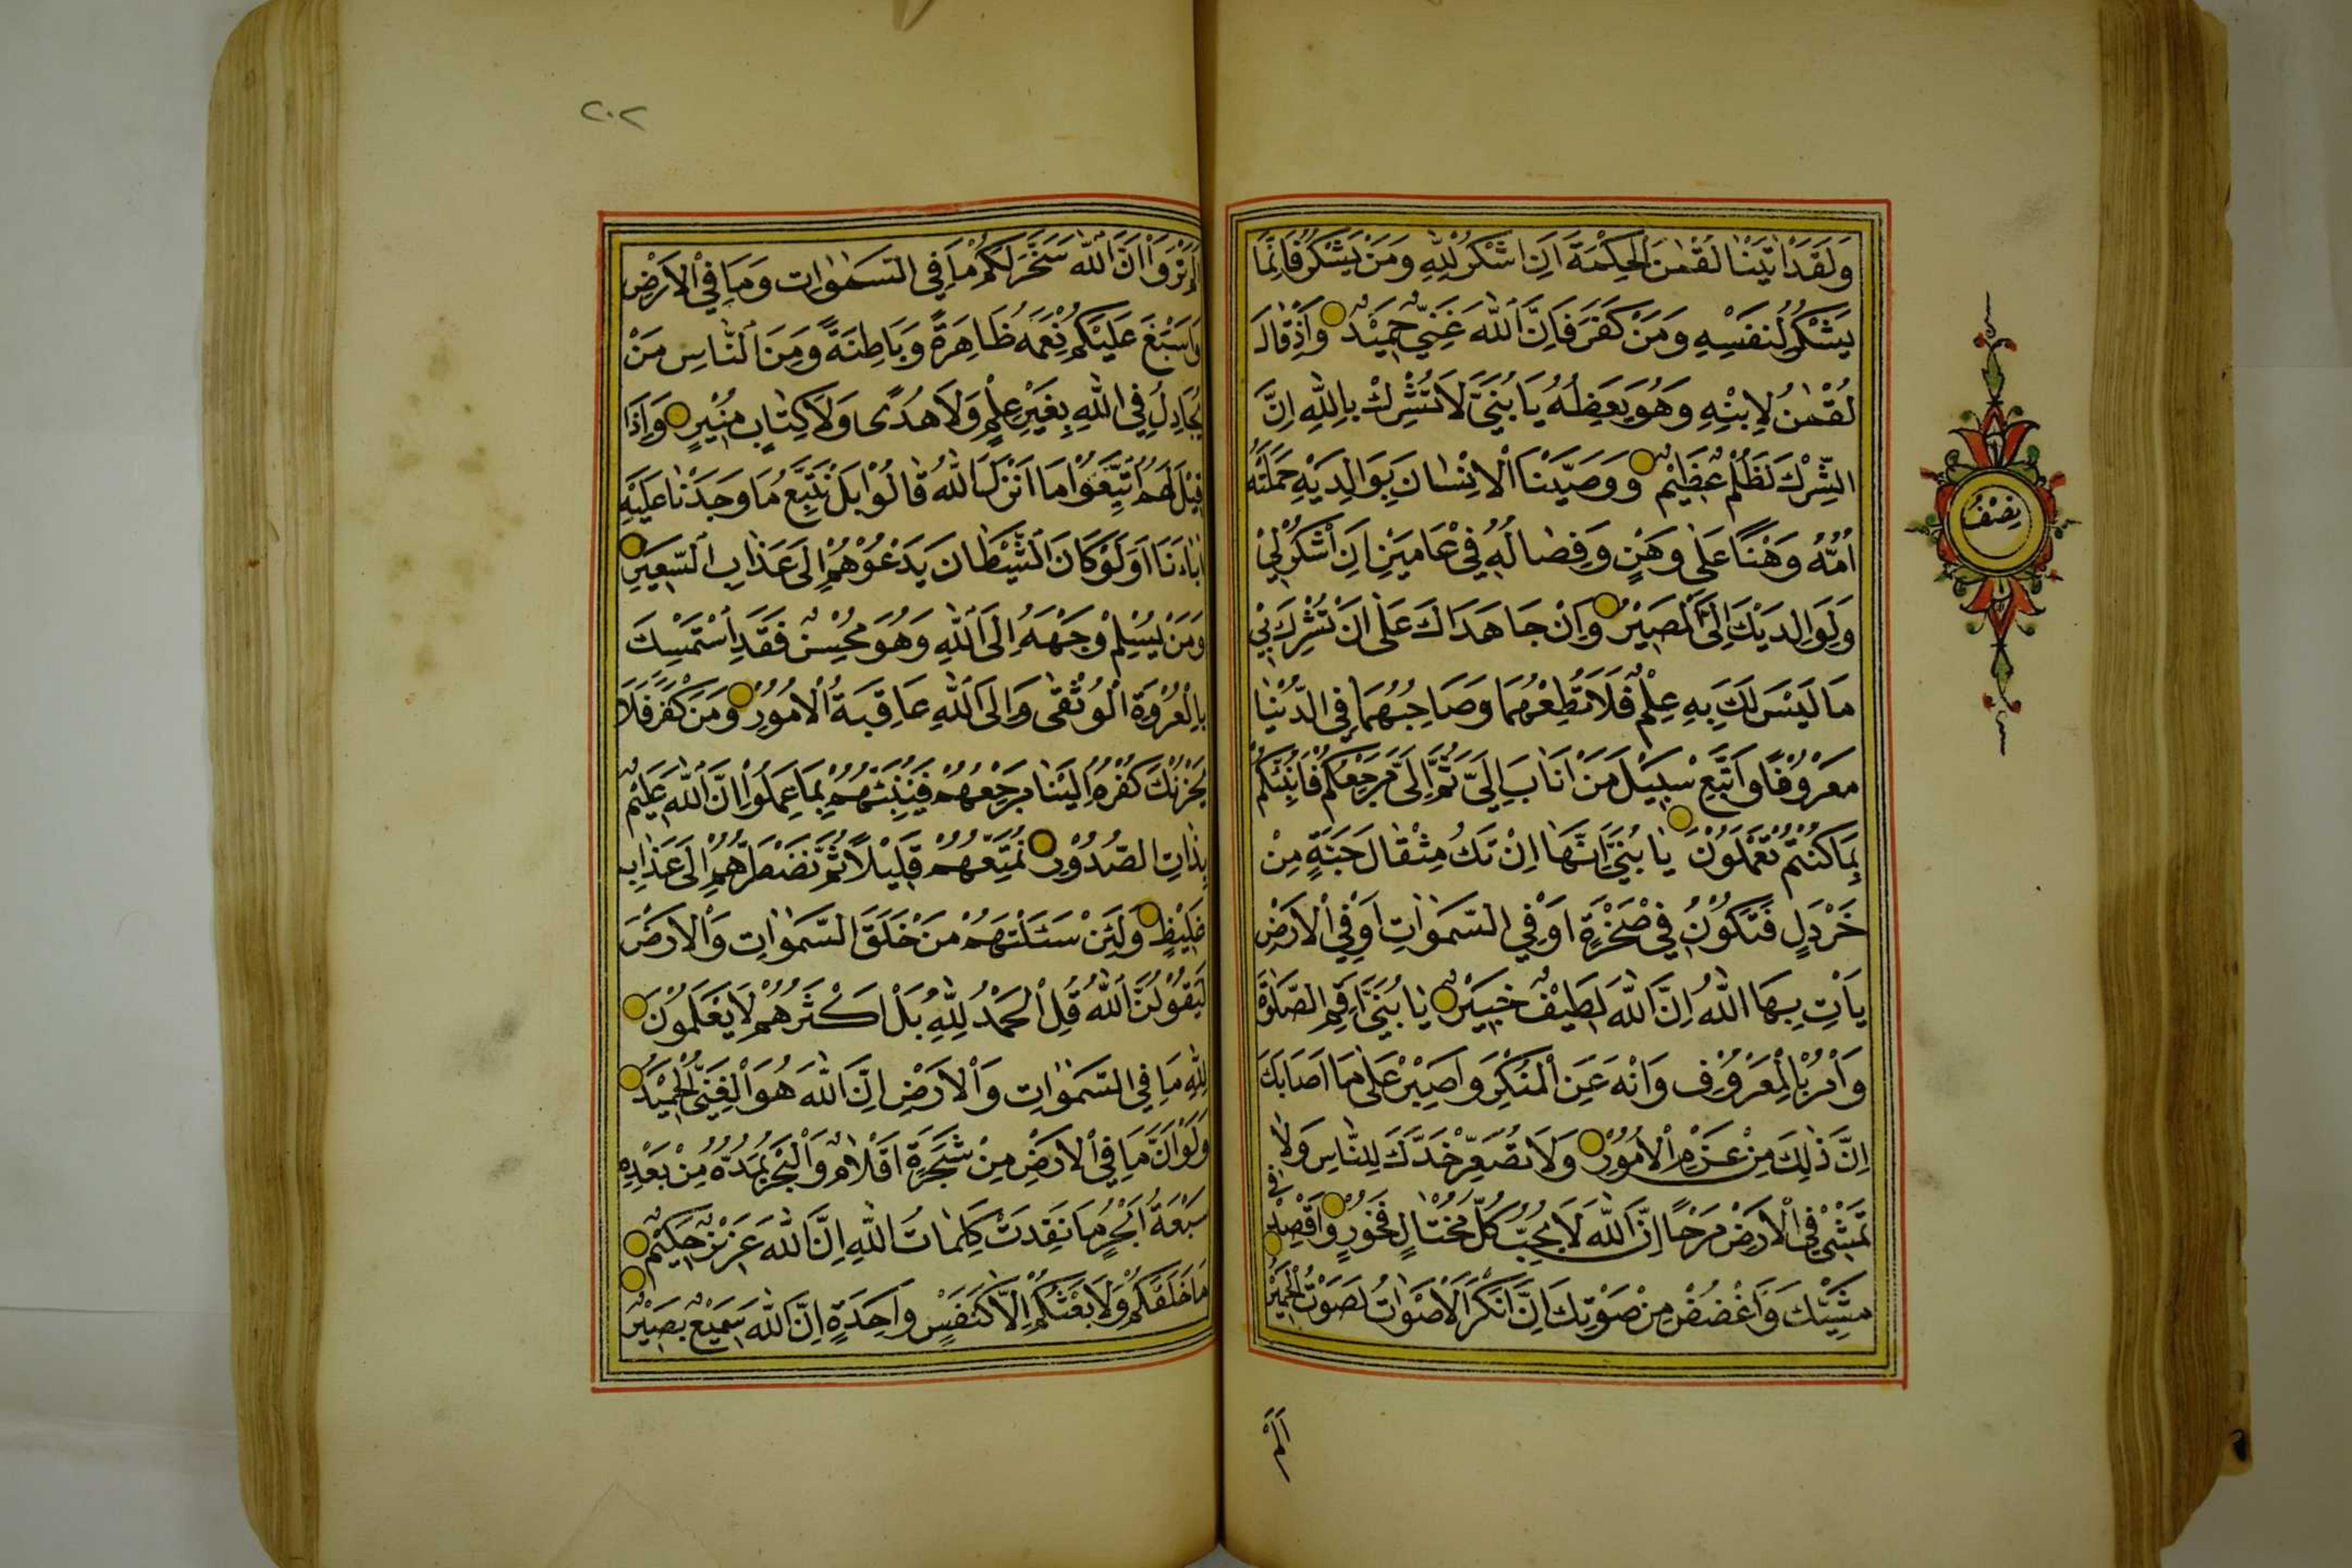 وَلَقَدْ اٰتَيْنَا لُقْمٰنَ الْحِكْمَةَ اَنِ اشْكُرْ لِلّٰهِ وَمَنْ يَشْكُرْ فَاِنَّمَا
يَشْكُرُ لِنَفْسِهِ وَمَنْ كَفَرَ فَاِنَّ اللّٰهَ غَنِيٌّ حَمِيْدٌ وَاِذْ قَالَ
لُقْمٰنُ لِابْنِهِ وَهُوَ يَعِظُهُ يَا بُنَيَّ لَا تُشْرِكْ بِاللّٰهِ اِنَّ
الشِّرْكَ لَظُلْمٌ عَظِيْمٌ وَوَصَّيْنَا الْاِنْسَانَ بِوَالِدَيْهِ حَمَلَتْهُ
اُمُّهُ وَهْنًا عَلٰى وَهْنٍ وَفِصَالُهُ فِيْ عَامَيْنِ اَنِ اشْكُرْ لِيْ
وَلِوَالِدَيْكَ اِلَيَّ الْمَصِيْرُ وَاِنْ جَاهَدَاكَ عَلٰى اَنْ تُشْرِكَ بِيْ
مَا لَيْسَ لَكَ بِهِ عِلْمٌ فَلَا تُطِعْهُمَا وَصَاحِبْهُمَا فِي الدُّنْيَا
مَعْرُوْفًا وَاتَّبِعْ سَبِيْلَ مَنْ اَنَابَ اِلَيَّ ثُمَّ اِلَيَّ مَرْجِعُكُمْ فَاُنَبِّئُكُمْ
بِمَا كُنْتُمْ تَعْمَلُوْنَ يَا بُنَيَّ اِنَّهَا اِنْ تَكُ مِثْقَالَ حَبَّةٍ مِنْ
خَرْدَلٍ فَتَكُوْنُ فِيْ صَخْرَةٍ اَوْ فِي السَّمٰوَاتِ اَوْ فِي الْاَرْضِ
يَأْتِ بِهَا اللّٰهُ اِنَّ اللّٰهَ لَطِيْفٌ خَبِيْرٌ يَا بُنَيَّ اَقِمِ الصَّلٰوةَ
وَأْمُرْ بِالْمَعْرُوْفِ وَانْهَ عَنِ الْمُنْكَرِ وَاصْبِرْ عَلٰى مَا اَصَابَكَ
اِنَّ ذٰلِكَ مِنْ عَزْمِ الْاُمُوْرِ وَلَا تُصَعِّرْ خَدَّكَ لِلنَّاسِ وَلَا
تَمْشِ فِي الْاَرْضِ مَرَحًا اِنَّ اللّٰهَ لَا يُحِبُّ كُلَّ مُخْتَالٍ فَخُوْرٍ وَاقْصِدْ فِي
مَشْيِكَ وَاغْضُضْ مِنْ صَوْتِكَ اِنَّ اَنْكَرَ الْاَصْوَاتِ لَصَوْتُ الْحَمِيْرِ
اَلَمْ
نِصْفُ
٢٠٢
اَلَمْ تَرَوْا اَنَّ اللّٰهَ سَخَّرَ لَكُمْ مَا فِي السَّمٰوَاتِ وَمَا فِي الْاَرْضِ
وَاَسْبَغَ عَلَيْكُمْ نِعَمَهُ ظَاهِرَةً وَبَاطِنَةً وَمِنَ النَّاسِ مَنْ
يُجَادِلُ فِي اللّٰهِ بِغَيْرِ عِلْمٍ وَلَا هُدًى وَلَا كِتَابٍ مُنِيْرٍ وَاِذَا
قِيْلَ لَهُمُ اتَّبِعُوْا مَا اَنْزَلَ اللّٰهُ قَالُوْا بَلْ نَتَّبِعُ مَا وَجَدْنَا عَلَيْهِ
اٰبَاءَنَا اَوَلَوْ كَانَ الشَّيْطَانُ يَدْعُوْهُمْ اِلَى عَذَابِ السَّعِيْرِ
وَمَنْ يُسْلِمْ وَجْهَهُ اِلَى اللّٰهِ وَهُوَ مُحْسِنٌ فَقَدِ اسْتَمْسَكَ
بِالْعُرْوَةِ الْوُثْقٰى وَاِلَى اللّٰهِ عَاقِبَةُ الْاُمُوْرِ وَمَنْ كَفَرَ فَلَا
يَحْزُنْكَ كُفْرُهُ اِلَيْنَا مَرْجِعُهُمْ فَنُنَبِّئُهُمْ بِمَا عَمِلُوْا اِنَّ اللّٰهَ عَلِيْمٌ
بِذَاتِ الصُّدُوْرِ نُمَتِّعُهُمْ قَلِيْلًا ثُمَّ نَضْطَرُّهُمْ اِلَى عَذَابٍ
غَلِيْظٍ وَلَئِنْ سَئَلْتَهُمْ مَنْ خَلَقَ السَّمٰوَاتِ وَالْاَرْضَ
لَيَقُوْلُنَّ اللّٰهُ قُلِ الْحَمْدُ لِلّٰهِ بَلْ اَكْثَرُهُمْ لَا يَعْلَمُوْنَ
لِلّٰهِ مَا فِي السَّمٰوَاتِ وَالْاَرْضِ اِنَّ اللّٰهَ هُوَ الْغَنِيُّ الْحَمِيْدُ
وَلَوْ اَنَّ مَا فِي الْاَرْضِ مِنْ شَجَرَةٍ اَقْلَامٌ وَالْبَحْرُ يَمُدُّهُ مِنْ بَعْدِهِ
سَبْعَةُ اَبْحُرٍ مَا نَفِدَتْ كَلِمَاتُ اللّٰهِ اِنَّ اللّٰهَ عَزِيْزٌ حَكِيْمٌ
مَا خَلْقُكُمْ وَلَا بَعْثُكُمْ اِلَّا كَنَفْسٍ وَاحِدَةٍ اِنَّ اللّٰهَ سَمِيْعٌ بَصِيْرٌ